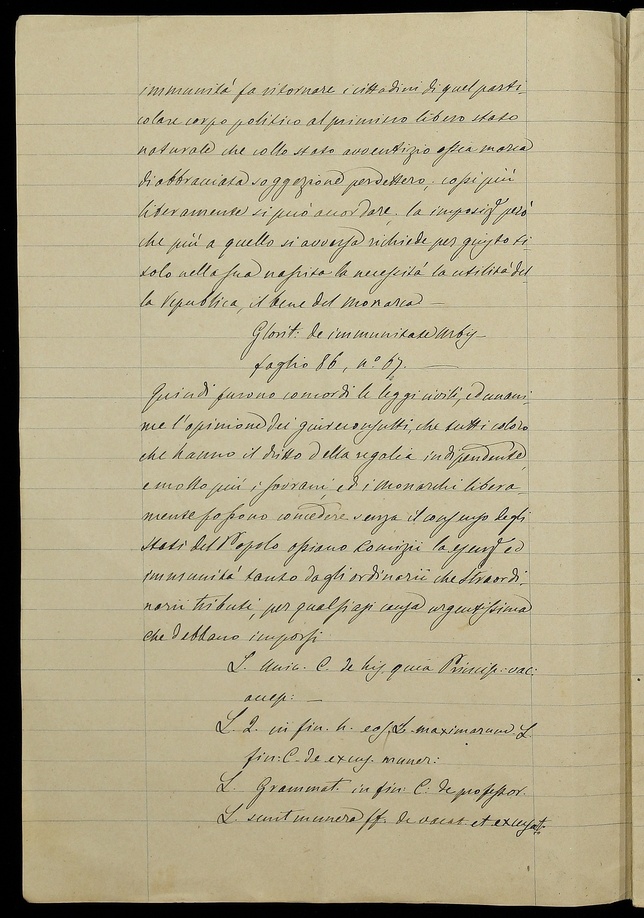 immunità fa ritornare i cittadini di quel parti-
colare corpo politico al primiero libero stato
naturale che collo stato avventizio ossea marca
di abbracciata soggezione perdettero; cossi più
liberamente si può accordare; la imposiz.e però
che più a quello si avversa richiede per giusto ti
tolo nella sua nascita la necessità la utilità del
la Repubblica, il bene del Monarca —
Glorit: de immunitate Urby —
foglio 86, n.o 67. —
Quindi furono concordi le leggi civili, ed unani-
me l'opinione dei giureconsulti, che tutti coloro
che hanno il dritto della regalia indipendente,
e molto più i sovrani, ed i Monarchi libera-
mente possono concedere senza il consenso degli
Stati del Popolo ossiano Comizii la esenz.e ed
immunità tanto dagli ordinarii che straordi-
narii tributi, per qualsiasi causa urgentissima
che debbano imporsi
L. Unic. C. de his quia Princip: vac:
accep: —
L. 2. in fin. h. eod. L. maximarum L.
fin: C. de excus. muner:
L. Grammat. in fin: C: de professor.
L. sunt munera ff. de vacat et excusat: